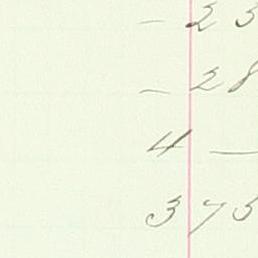 — 25
— 28
4 —
3 75